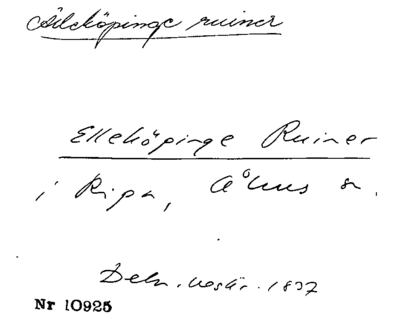 Älleköpinge ruiner
Elleköpinge Ruiner
i Ripa, Åhus sn.
Dekn. 1837
Nr 10925